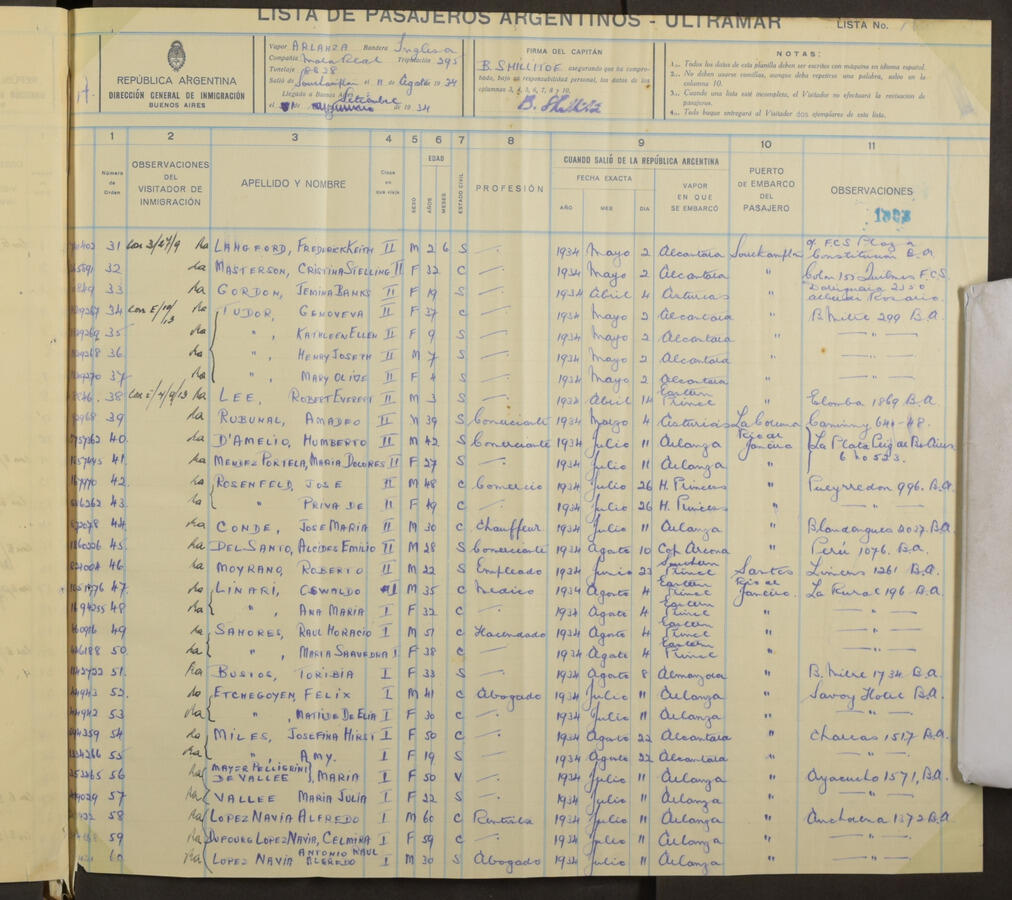 LISTA DE PASAJEROS ARGENTINOS - ULTRAMAR LISTA No.
REPÚBLICA ARGENTINA
DIRECCIÓN GENERAL DE INMIGRACIÓN
BUENOS AIRES
Vapor ARLANZA Bandera Inglesa
Compañía Mala Real Tripulación 295
Tonelaje
Salió de Southampton el 11 Agosto 1934
Llegado a Buenos Aires
el de Setiembre de 1934
FIRMA DEL CAPITÁN
B. SHILLITOE asegurando que ha comprobado, bajo su responsabilidad personal, los datos de las columnas 3, 4, 5, 6, 7, 8 y 10.
B. Shillitoe
NOTAS:
1.. Todos los datos de esta planilla deben ser escritos con máquina en idioma español.
2.. No deben usarse comillas, aunque deba repetirse una palabra, salvo en la columna 10.
3.. Cuando una lista esté incompleta, el Visitador no efectuará la revisación de pasajeros.
4.. Todo buque entregará al Visitador dos ejemplares de esta lista.
1 2 3 4 5 6 7 8 9 10 11
Número de Orden
OBSERVACIONES DEL VISITADOR DE INMIGRACIÓN
APELLIDO Y NOMBRE
Clase en que viaja
SEXO
EDAD
AÑOS MESES
ESTADO CIVIL
PROFESIÓN
CUANDO SALIÓ DE LA REPÚBLICA ARGENTINA
FECHA EXACTA
AÑO MES DIA
VAPOR EN QUE SE EMBARCÓ
PUERTO DE EMBARCO DEL PASAJERO
OBSERVACIONES
31 LANGFORD, FREDERICK KEITH II M 2 6 S 1934 Mayo 2 Alcantara Southampton F.C.S. Plaza Constitucion B.A.
32 MASTERSON, CRISTINA STELLING II F 32 C 1934 Mayo 2 Alcantara " Colon 153 Quilmes F.C.S.
33 GORDON, JEMINA BANKS II F 19 S 1934 Abril 4 Asturias " 2350 Rosario.
34 TUDOR, GENOVEVA II F 37 C 1934 Mayo 2 Alcantara " B. Mitre 299 B.A.
35 ", KATHLEEN ELLEN II F 9 S 1934 Mayo 2 Alcantara " — " —
36 ", HENRY JOSEPH II M 7 S 1934 Mayo 2 Alcantara " — " —
37 ", MARY OLIVE II F 4 S 1934 Mayo 2 Alcantara " — " —
38 LEE, ROBERT EVEREST II M 3 S 1934 Abril 14 Eastern Prince " 1869 B.A.
39 RUBUNAL, AMADEO II M 39 S Comerciante 1934 Marzo 4 Asturias La Coruna 641-48.
40 D'AMELIO, HUMBERTO II M 42 S Comerciante 1934 Julio 11 Arlanza Rio de Janeiro La Plata
41 MENDEZ PORTELA, MARIA DOLORES II F 27 S 1934 Julio 11 Arlanza " 523.
42 ROSENFELD, JOSE II M 48 C Comercio 1934 Julio 26 H. Princess " Pueyrredon 996. B.A.
43 " PRIVA DE II F 49 C 1934 Julio 26 H. Princess " — " —
44 CONDE, JOSE MARIA II M 30 C Chauffeur 1934 Julio 11 Arlanza " Blandengues 2037. B.A.
45 DEL SANTO, ALCIDES EMILIO II M 28 S Comerciante 1934 Agosto 10 Cap Arcona " Perú 1076. B.A.
46 MOYRANO, ROBERTO II M 22 S Empleado 1934 Junio 23 Southern Prince Santos Liniers 1261 B.A.
47 LINARI, OSWALDO I M 35 C Medico 1934 Agosto 4 Eastern Prince Rio de Janeiro. La Rural 196. B.A.
48 ", ANA MARIA I F 32 C 1934 Agosto 4 Eastern Prince " — " —
49 SAHORES, RAUL HORACIO I M 51 C Hacendado 1934 Agosto 4 Eastern Prince " — " —
50 ", MARIA SAAVEDRA I F 38 C 1934 Agosto 4 Eastern Prince " — " —
51 BUSTOS, TORIBIA I F 33 S 1934 Agosto 8 Almanzora " B. Mitre 1734. B.A.
52 ETCHEGOYEN, FELIX I M 41 C Abogado 1934 Julio 11 Arlanza " Savoy Hotel B.A.
53 ", MATILDE DE ELIA I F 30 C 1934 Julio 11 Arlanza " — " —
54 MILES, JOSEFINA HIRST I F 50 C 1934 Agosto 22 Alcantara " Charcas 1517 B.A.
55 " AMY. I F 19 S 1934 Agosto 22 Alcantara " — " —
56 MAYER PELLIGRINI DE VALLEE, MARIA I F 50 V 1934 Julio 11 Arlanza " Ayacucho 1571, B.A.
57 VALLEE MARIA JULIA I F 22 S 1934 Julio 11 Arlanza " — " —
58 LOPEZ NAVIA ALFREDO I M 60 C Rentista 1934 Julio 11 Arlanza " Anchorena 1372 B.A.
59 DUFOURG LOPEZ NAVIA, CELMIRA I F 59 C 1934 Julio 11 Arlanza " — " —
60 LOPEZ NAVIA ANTONIO RAUL ALFREDO I M 30 S Abogado 1934 Julio 11 Arlanza " — " —